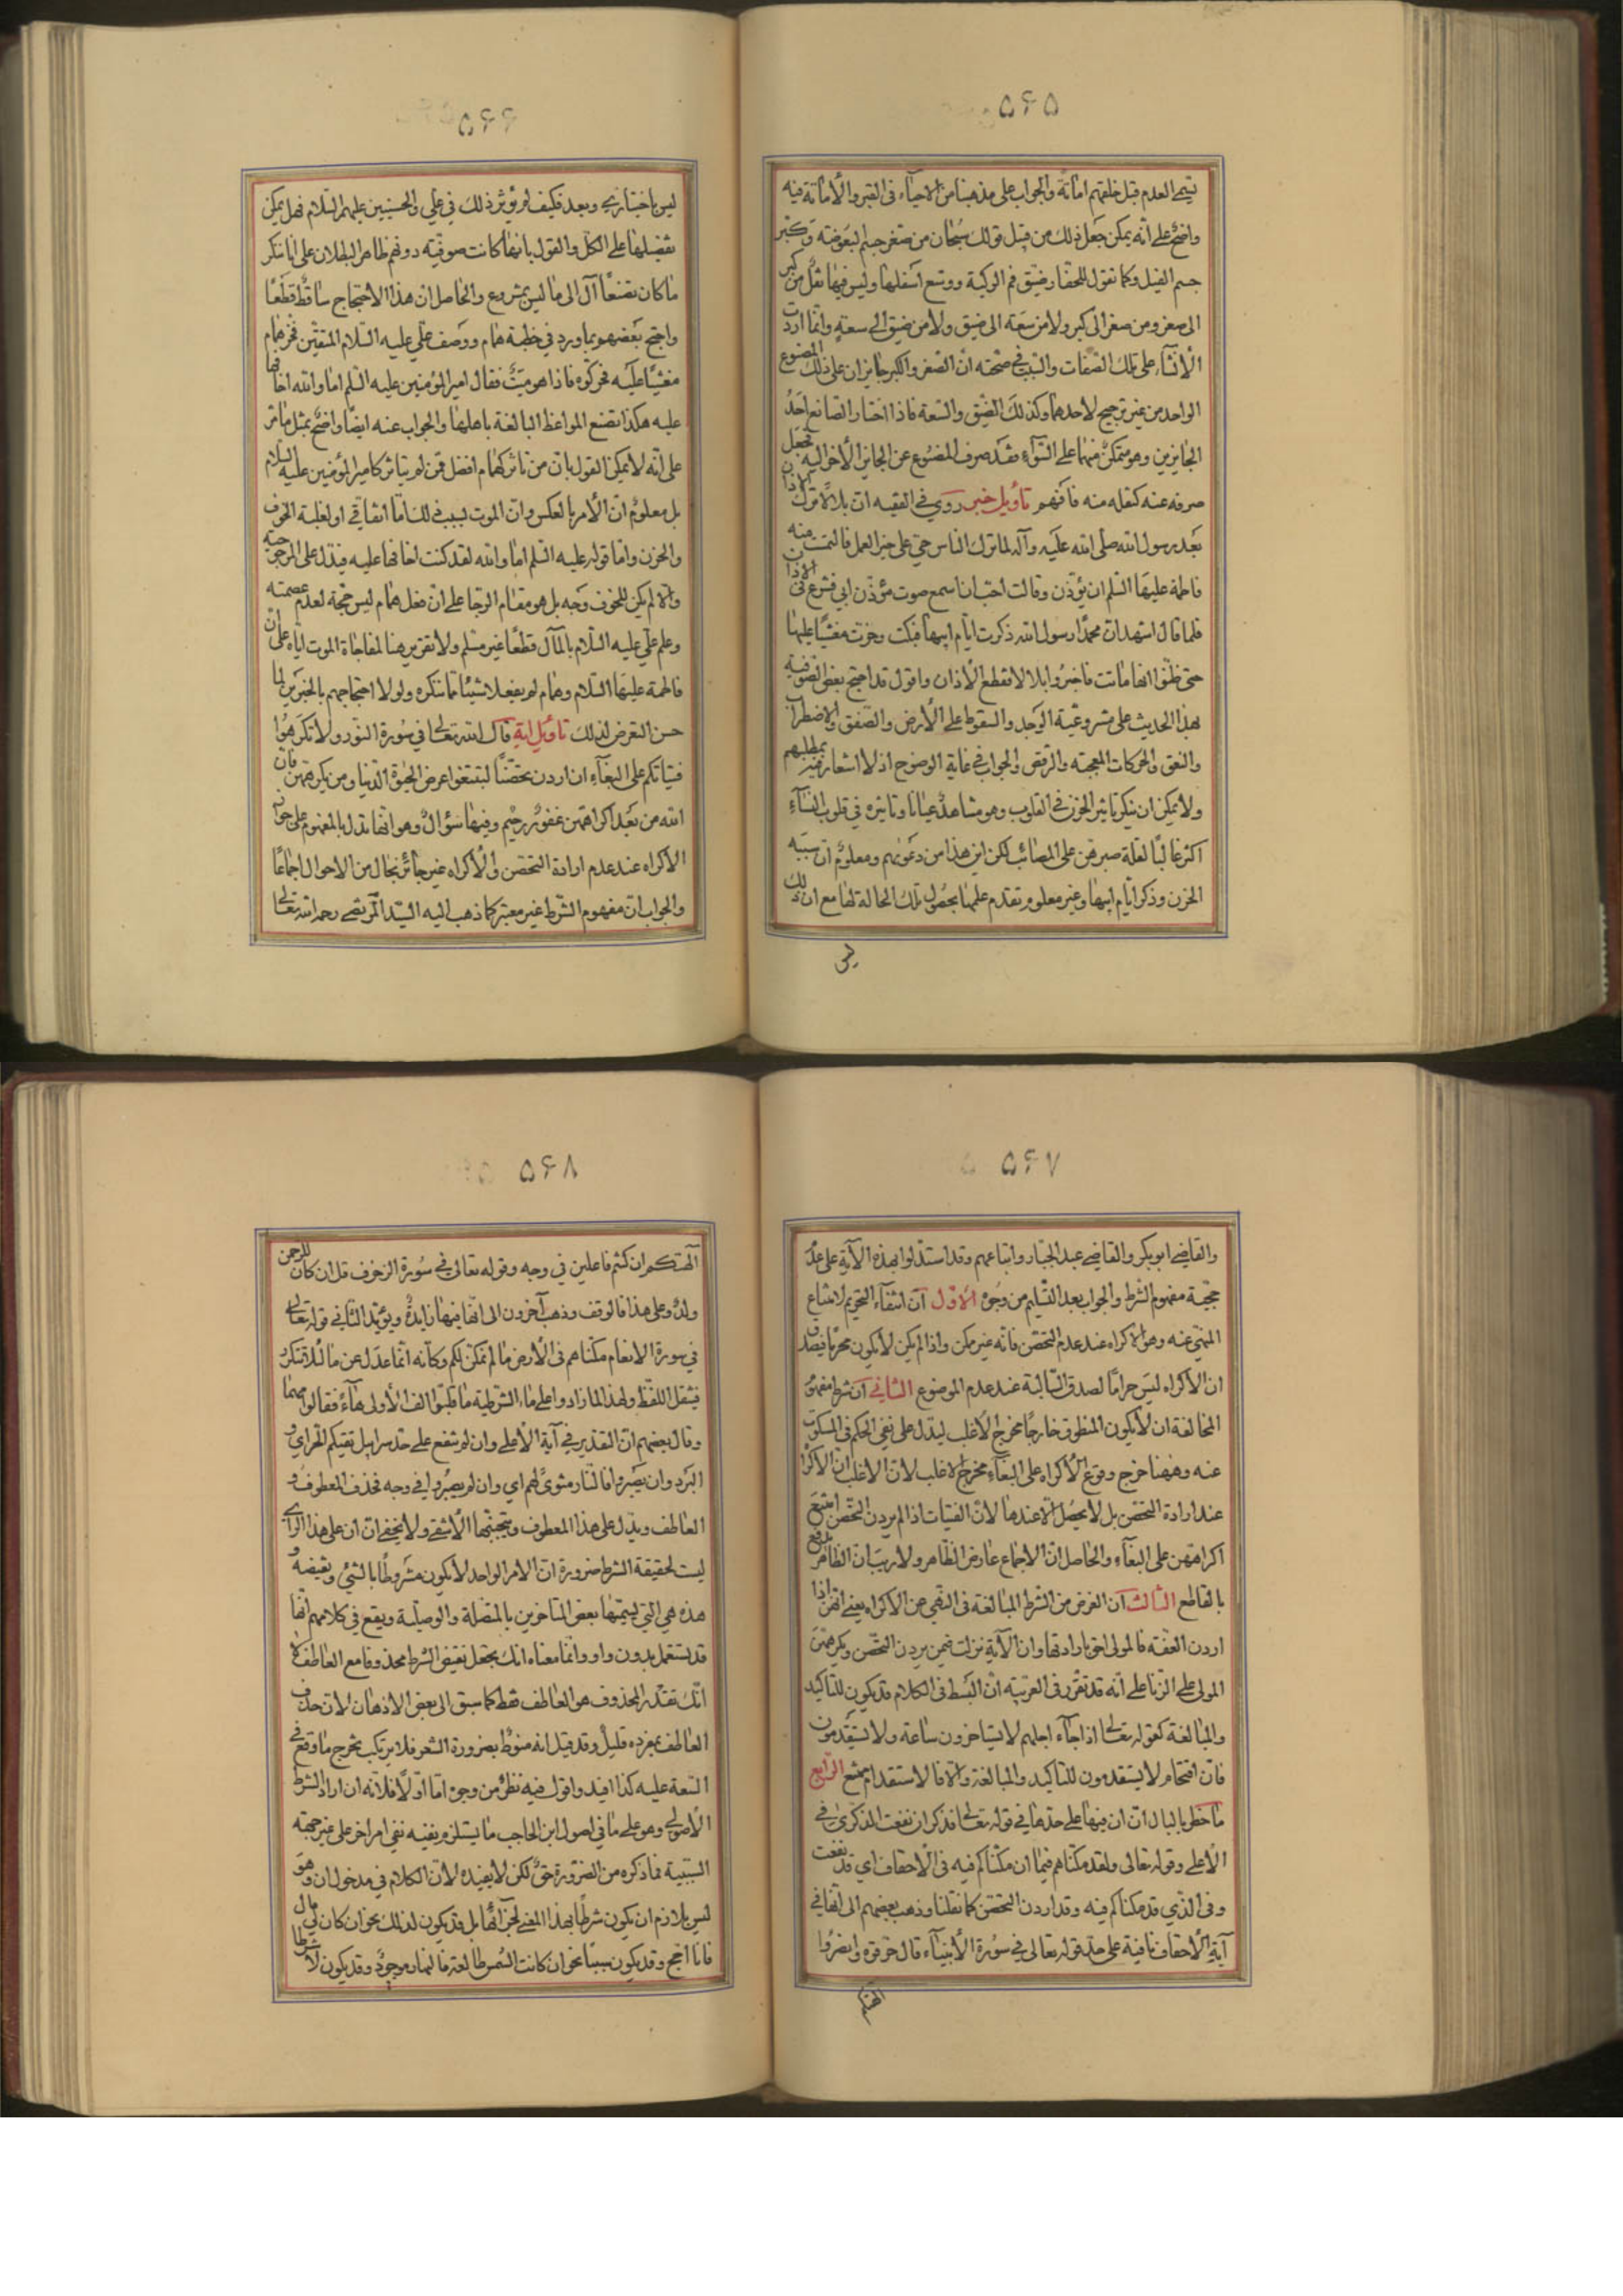 ۵۶۵
تيم العدم قبل خلقهم اماتة والجواب على مذهبنا من الاحياء فى القبر والأماتة فيه
واضح على انّه يمكن جعل ذلك من قبيل قولك سُبحان من صغر جسم البعوضة وكبّر
جسم الفيل وكما تقول للحفّار ضيّق فم الركية ووسّع اسفلها وليس فيها نقلٌ من كبر
الى صغر ومن صغر الى كبر ولا من سَعة الى ضيق ولا من ضيق الى سعة وانّما اردت
الأنشاء على تلك الصّفات والسّبب فى صحّته انّ الصّغر والكبر جايزان على ذلك المصنوع
الواحد من غير ترجيح لأحدهما وكذلك الضّيق والسّعة فاذا اختار الصّانع احدُ
الجايزين وهو متمكّن منهما على السّواء فقد صرف المصنُوع عن الجايز الأخر اليه فجعل
صرفه عنه كنقله منه فافهم تأويل خبر روى فى الفقيه ان بلالاً ترك الاذان
بَعد رسول الله صلّى الله عليه وآله لما ترك الناس حىّ على خير العمل فالتمست منه
فاطمة عليها السّلم ان يؤذن وقالت احبّ ان اسمع صوت مؤذّن ابى فشرع فى الاذان
فلمّا قال اشهد انّ محمّدًا رسول الله ذكرت ايّام ابيها فبكت وخرّت مغشيًّا عليها
حتى ظنّوا انها ماتت فاخبرُوا بلالا فقطع الأذان واقول قد احتج بعض الصّوفيّة
بهذا الحديث على مشروعيّة الوَجد والسقوط على الأرض والصّفق والاضطراب
والنعق والحركات المعجبة والرّقص والجواب فى غاية الوضوح اذ لا اشعار فيه بمطلبهم
ولا يمكن ان ينكر تاثير الحزن فى القلوب وهو مشاهدٌ عيانا وتاثيره فى قلوب النّساء
اكثر غالبًا لقلّة صبرهن على المصائب لكن اين هذا من دعوَاهم ومعلومٌ انّ سَببَه
الحزن وذكر ايّام ابيها وغير معلوم تقدم علمها بحصُول تلك الحالة لها مع ان ذلك
ليس
۵۶۶
ليس باختيارىّ وبعد فكيف لم يؤثّر ذلك فى علىّ والحسنين عليهم السّلام فهل يمكن
تفضيلها على الكلّ والقول بانّها كانت صوفيّة دونهم ظاهر البطلان على انا ننكر
ما كان تصنّعًا آل الى ما ليس بمشروع والحاصل ان هذا الاحتجاج ساقط قطعًا
واحتجّ بَعضهم بما ورد فى خطبة همام ووَصف علّى عليه السّلام المتّقين فخرّ همام
مغشيًّا عليه فحركوه فاذا هو ميّت فقال امير المؤمنين عليه السّلم امَا والله اخافها
عليه هكذا تصنع المواعظ البالغة باهلها والجواب عنه ايضًا واضحٌ بمثل ما مرّ
على انّه لا يمكن القول بان من تاثر كهمام افضل ممّن لم يتاثر كامير المؤمنين عليه السلام
بل معلومٌ انّ الأمر بالعكس وانّ الموت بسبب ذلك امّا اتّفاقى او لغلبة الخوف
والحزن وامّا قوله عليه السّلم امَا والله لقد كنت اخافها عليه فيدلّ على المرجوحيّة
والّا لم يكن للخوف وجه بل هو مقام الرجا على ان فعل همام ليس حجّة لعدم عصمته
وعلم علّى عليه السّلام بالمآل قطعًا غير مسلّم ولا تقرير هنا لمفاجاة الموت ايّاه على ان
فاطمة عليها السّلام وهمام لم يفعلا شيئا مما ننكره ولولا احتجاجهم بالخبرين لما
حسن التعرض لذلك تأويل اية قال الله تعالى فى سُورة النّور ولا تكرهُوا
فتياتكم على البغاء ان اردن تحصّنًا لتبتغوا عرض الحيوة الدّنيا ومن يكرههنّ فانّ
الله من بَعد اكراههنّ غفورٌ رحيم وفيها سؤالٌ وهو انها تدل بالمفهوم على جواز
الأكراه عند عدم ارادة التحصّن والأكراه غير جائز بحال من الاحوال اجماعًا
والجواب انّ مفهوم الشّرط غير معتبر كما ذهب اليه السّيّد المرتضى رحمه الله تعالى
۵۶۷
والقاضى ابو بكر والقاضى عبد الجبّار واتباعهم وقد استدلّوا بهذه الآية على عدم
حجّية مفهوم الشّرط والجواب بعد التّسليم من وجُوه الأوّل انّ انتفاء التّحريم لامتناع
المنهىّ عنه وهو الأكراه عند عدم التحصّن فانّه غير ممكن واذا لم يكن لا يكون محرّمًا فيصدق
ان الأكراه ليسَ حرامًا لصدق السّالبة عند عدم الموضوع الثّانى انّ شرط مفهوم
المخالفة ان لا يكون المنطوق خارجًا مخرج الأغلب ليدلّ على نفى الحكم فى المسكوت
عنه وههنا خرج وقوع الأكراه على البغاء مخرج الاغلب لانّ الاغلب انّ الأكراه
عند ارادة التحصّن بل لا يحصُل الّا عندها لأنّ الفتيات اذا لم يردن التحصّن امتنع
اكراههن على البغاء والحاصل انّ الاجماع عارض الظّاهر ولا ريبَ انّ الظّاهر يدفع
بالقاطع الثّالث انّ الغرض من الشّرط المبالغة فى النّهى عن الأكراه يعنى انّهنّ اذا
اردن العفّة فالمولى احقّ بارادتها وان الآية نزلت فيمن يردن التحصّن ويكرههنّ
المولى على الزّنا على انّه قد تقرّر فى العربيّة انّ البَسط فى الكلام قد يكون للتّاكيد
والمبالغة كقوله تعالى اذا جاء اجلهم لا يستاخرون ساعة ولا يستقدمون
فانّ اقحام لا يستقدمون للتّاكيد والمبالغة والّا فالاستقدام ممتنع الرّابع
ما خطر بالبال انّ ان فيها على حدها فى قوله تعالى فذكر ان نفعت الذّكرى فى
الأعلى وقوله تعالى ولقد مكنّاهم فيما ان مكنّاكم فيه فى الأحقاف اى قد نفعت
وفى الذى قد مكنّاكم فيه وقد اردن التحصّن كما نقلنا وذهب بعضهم الى انّها فى
آية الأحقاف نافية على حدّ قوله تعالى فى سُورة الأنبياء قال حرّقوه وانصرُوا
آلهتكم
۵۶۸
آلهتكم ان كنتم فاعلين فى وجه وقوله تعالى فى سُورة الزخرف قل ان كان للرحمن
ولدٌ وعلى هذا فالوقف وذهب آخرون الى انّها فيها زايدةٌ ويؤيّد الثّانى قوله تعالى
فى سورة الانعام مكنّاهم فى الأرض ما لم نمكّن لكم وكأنّه انّما عدل عن ما لئلا تتكرّر
فيثقل اللّفظ ولهذا لما زادوا على ما الشرطية ما قلبوا الف الأولى هاءً فقالوا مهما
وقال بعضهم انّ التقدير فى آية الأعلى وان لم تنفع على حدّ سرابيل تقيكم الحرّ اى و
البرد وان يصبروا فالنّار مثوىً لهم اى وان لم يصبرُوا فى وجه فحذف المعطوف و
العاطف ويدل على هذا المعطوف ويتجنّبها الأشقى ولا يخفى انّ ان على هذا الرّأى
ليست لحقيقة الشرط ضرورة انّ الامر الواحد لا يكون مشروطًا بالشّئ ونقيضه و
هذه هى التى يسمّيها بعض المتاخرين بالمتّصلة والوصليّة ويقع فى كلامهم انّها
قد تستعمل بدون واو وانّما معناه انّك تجعل نقيض الشّرط محذوفا مع العاطف لا
انّك تقدّر المحذوف هو العاطف فقط كما سبق الى بعض الاذهان لانّ حذف
العاطف بمفرده قليلٌ وقد قيل انه منوطٌ بضرورة الشعر فلا يرتكب تخرج ما وقع فى
السّعة عليه كذا افيد واقول فيه نظرٌ من وجوه امّا اوّلًا فلانّه ان اراد الشّرط
الأصولى وهو على ما فى اصول ابن الحاجب ما يستلزم نفيه نفى امر اخر على غير جهة
السّببيّة فما ذكره من الضّرورة حقٌّ لكن لا يفيده لأنّ الكلام فى مدخول ان وهو
ليس بلازم ان يكون شرطًا بهذا المعنى لجزآئها بل قد يكون لذلك نحو ان كان لى مال
فانا احجّ وقد يكون سببًا نحو ان كانت الشّمس طالعة فالنّهار موجودٌ وقد يكون لا شرطا